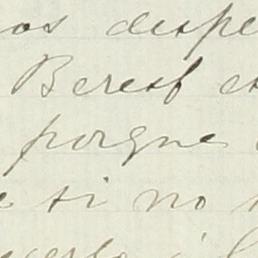 os despe
Beresf es
porque
e si no